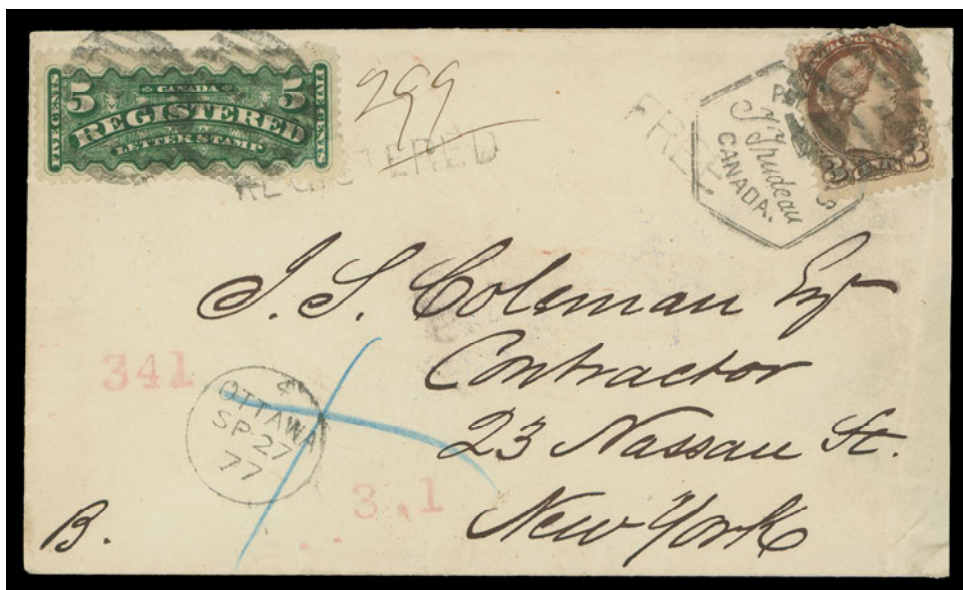 CANADA
5 REGISTERED 5
LETTER STAMP
FIVE CENTS
FIVE CENTS
299
REGISTERED
FREE
T Trudeau
CANADA.
3 3
J. S. Coleman Esq
Contractor
23 Nassau St.
New York
341
4
OTTAWA
SP 27
77
3.1
B.